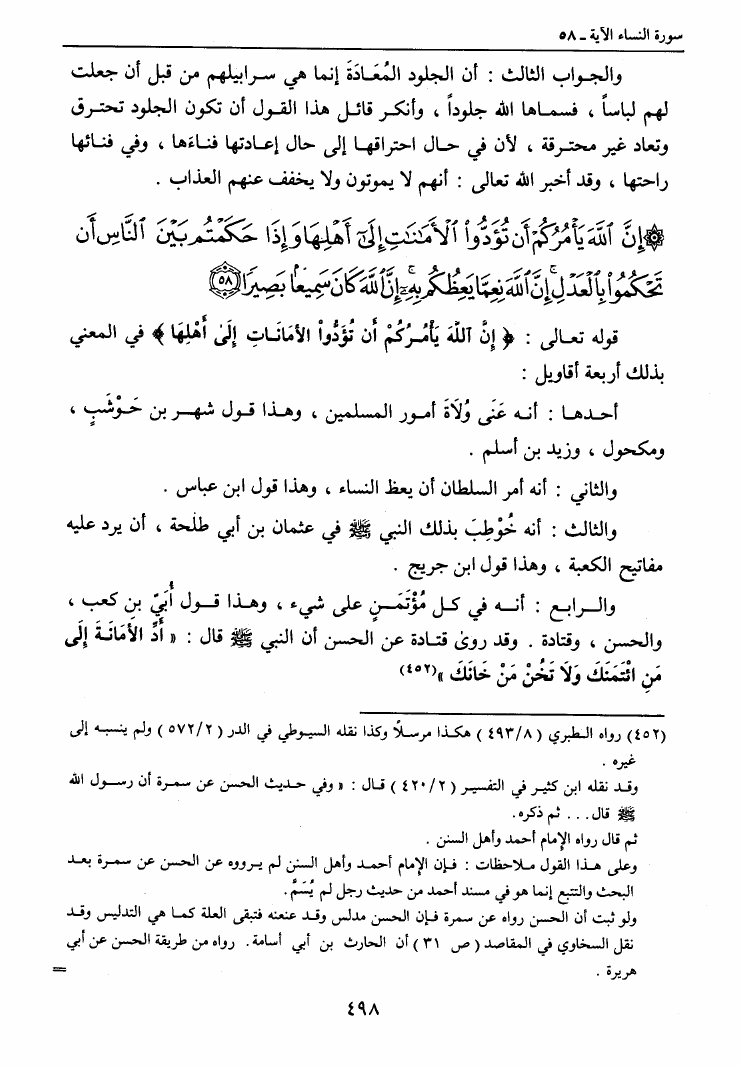 سورة النساء الآية ـ ٥٨
والجواب الثالث : أن الجلود المُعَادَةَ إنما هي سرابيلهم من قبل أن جعلت
لهم لباساً ، فسماها الله جلوداً ، وأنكر قائل هذا القول أن تكون الجلود تحترق
وتعاد غير محترقة ، لأن في حال احتراقها إلى حال إعادتها فناءَها ، وفي فنائها
راحتها ، وقد أخبر الله تعالى : أنهم لا يموتون ولا يخفف عنهم العذاب .
۞ إِنَّ ٱللَّهَ يَأْمُرُكُمْ أَن تُؤَدُّوا۟ ٱلْأَمَٰنَٰتِ إِلَىٰٓ أَهْلِهَا وَإِذَا حَكَمْتُم بَيْنَ ٱلنَّاسِ أَن
تَحْكُمُوا۟ بِٱلْعَدْلِ ۚ إِنَّ ٱللَّهَ نِعِمَّا يَعِظُكُم بِهِۦٓ ۗ إِنَّ ٱللَّهَ كَانَ سَمِيعًۢا بَصِيرًا ﴿٥٨﴾
قوله تعالى : ﴿ إِنَّ ٱللَّهَ يَأْمُرُكُمْ أَن تُؤَدُّواْ الأَمَانَاتِ إِلَىٰ أَهْلِهَا ﴾ في المعني
بذلك أربعة أقاويل :
أحدها : أنه عَنَى وُلَاةَ أمور المسلمين ، وهذا قول شهر بن حَوْشَبٍ ،
ومكحول ، وزيد بن أسلم .
والثاني : أنه أمر السلطان أن يعظ النساء ، وهذا قول ابن عباس .
والثالث : أنه خُوْطِبَ بذلك النبي ﷺ في عثمان بن أبي طلحة ، أن يرد عليه
مفاتيح الكعبة ، وهذا قول ابن جريج .
والرابع : أنه في كل مُؤْتَمَنٍ على شيء ، وهذا قول أُبَيّ بن كعب ،
والحسن ، وقتادة . وقد روىٰ قتادة عن الحسن أن النبي ﷺ قال : « أَدِّ الأَمَانَةَ إِلَى
مَنِ ائْتَمَنَكَ وَلاَ تَخُنْ مَنْ خَانَكَ »(٤٥٢)
(٤٥٢) رواه الطبري ( ٤٩٣/٨ ) هكذا مرسلاً وكذا نقله السيوطي في الدر ( ٥٧٢/٢ ) ولم ينسبه إلى
غيره .
وقد نقله ابن كثير في التفسير ( ٤٢٠/٢ ) قال : « وفي حديث الحسن عن سمرة أن رسول الله
ﷺ قال . . . ثم ذكره .
ثم قال رواه الإمام أحمد وأهل السنن .
وعلى هذا القول ملاحظات : فإن الإمام أحمد وأهل السنن لم يرووه عن الحسن عن سمرة بعد
البحث والتتبع إنما هو في مسند أحمد من حديث رجل لم يُسَمَّ .
ولو ثبت أن الحسن رواه عن سمرة فإن الحسن مدلس وقد عنعنه فتبقى العلة كما هي التدليس وقد
نقل السخاوي في المقاصد ( ص ٣١ ) أن الحارث بن أبي أسامة . رواه من طريقة الحسن عن أبي
هريرة .
=
٤٩٨